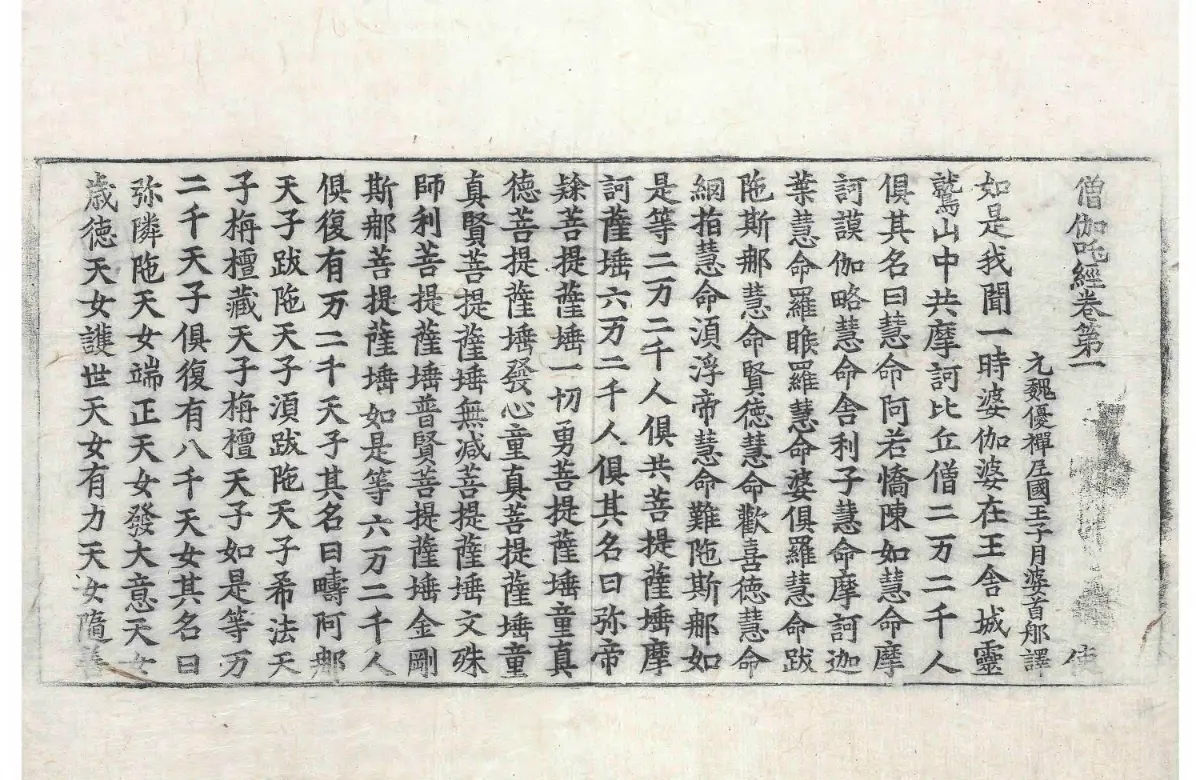 僧伽吒經卷第一 使
元魏優禪尼國王子月婆首那譯
如是我聞一時婆伽婆在王舍城靈
鷲山中共摩訶比丘僧二万二千人
俱其名曰慧命阿若憍陳如慧命摩
訶謨伽略慧命舍利子慧命摩訶迦
葉慧命羅睺羅慧命婆俱羅慧命跋
陁斯那慧命賢徳慧命歡喜徳慧命
網拍慧命湏浮帝慧命難陁斯那如
是等二万二千人俱共菩提薩埵摩
訶薩埵六万二千人俱其名曰弥帝
𨽻菩提薩埵一切勇菩提薩埵童真
德菩提薩埵發心童真菩提薩埵童
真賢菩提薩埵無减菩提薩埵文殊
師利菩提薩埵普賢菩提薩埵金剛
斯那菩提薩埵如是等六万二千人
俱復有万二千天子其名曰疇阿那
天子跋陁天子湏跋陁天子希法天
子栴檀藏天子栴檀天子如是等万
二千天子俱復有八千天女其名曰
弥隣陁天女端正天女發大意天女
歳徳天女護世天女有力天女隨善